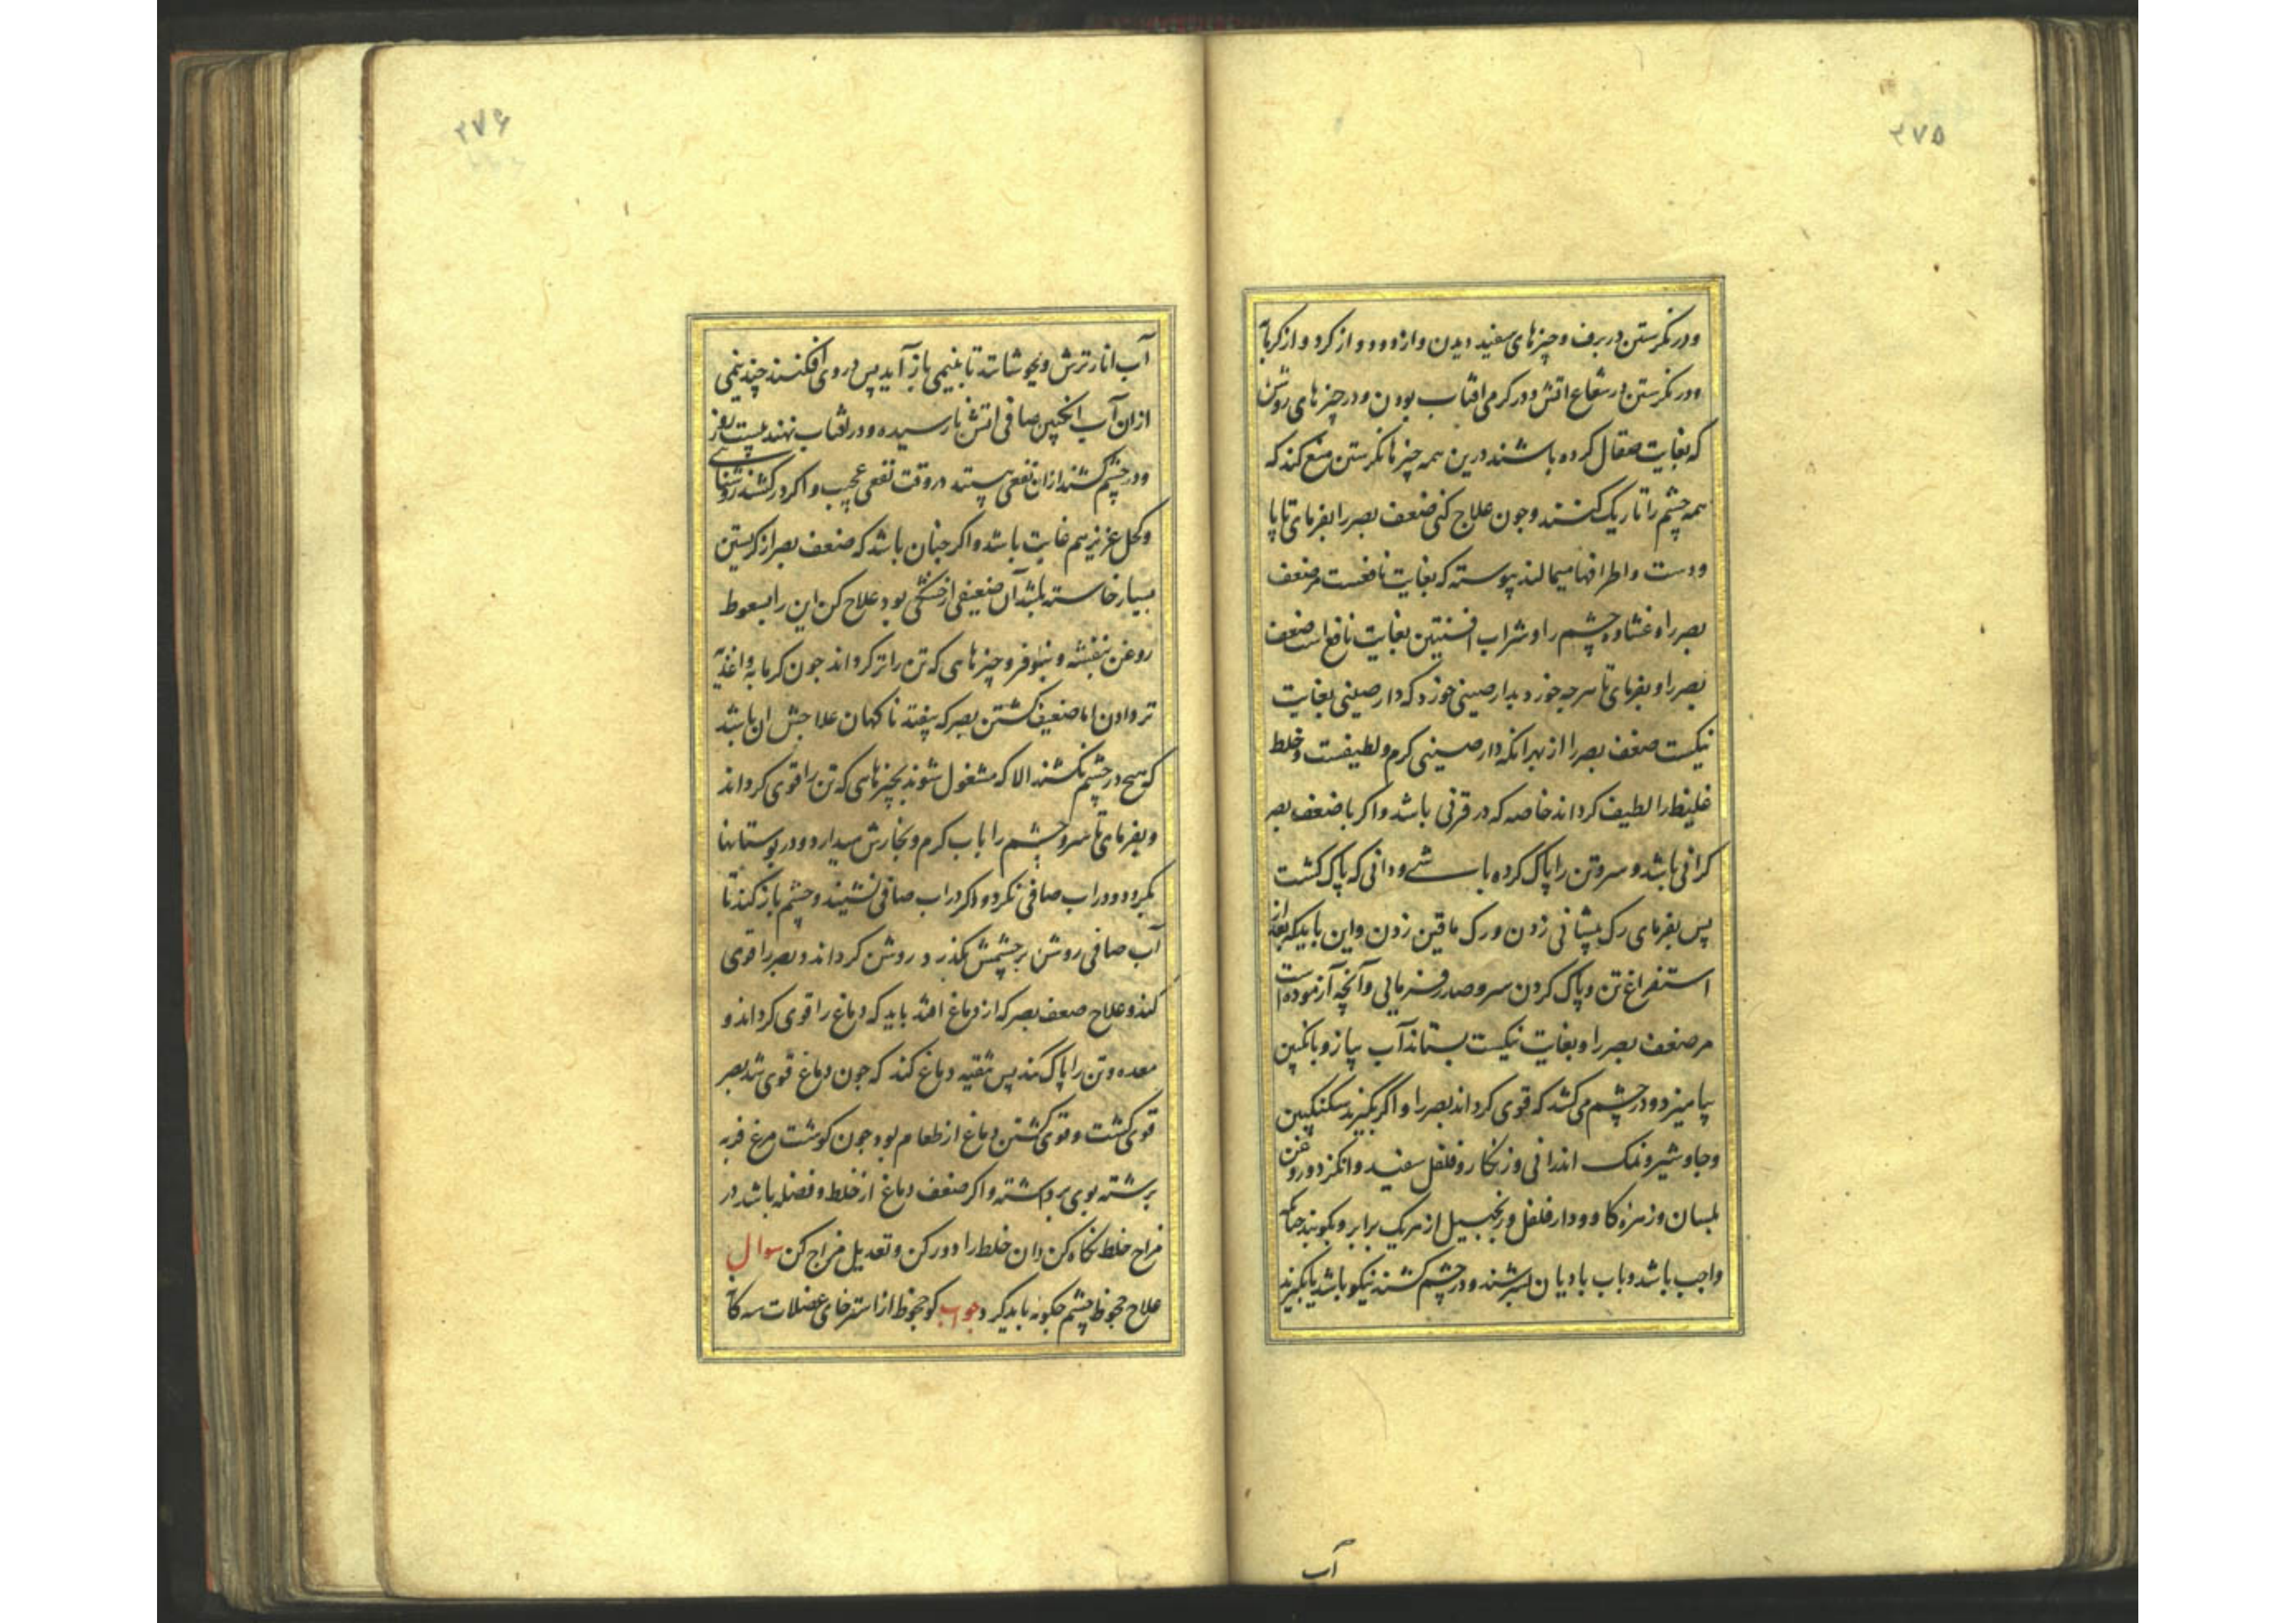 ۲۷۵
ودر نکرستن در برف وچیزهای سفید دیدن واز دود و از کرد و از کرمابه
ودر نکرستن در شعاع اتش ودر کرمی افتاب بودن ودر چیزهای روشن
که بغایت صقال کرده باشند درین همه چیزها نکرستن منع کند که
همه چشم را تاریک کنند وجون علاج کنی ضعف بصر را بفرمای تا پا
ودست واطرافها میمالند پیوسته که بغایت نافعست مر ضعف
بصر را و غشاوه چشم را وشراب افسنتین بغایت نافع است ضعف
بصر را وبفرمای تا هرجه خورد بدارصینی خورد که دارصینی بغایت
نیکست ضعف بصر را از بهر انکه دارصینی کرم ولطیفست وخلط
غلیظ را لطیف کرداند خاصه که در قرنی باشد واکر با ضعف بصر
کرانی باشد و سر وتن را پاک کرده باشے ودانی که پاک کشت
پس بفرمای رک پیشانی زدن ورک ماقین زدن واین باید که بعد از
استفراغ تن وپاک کردن سر وصدر فرمایی وآنچه آزموده است
مر ضعف بصر را وبغایت نیکست بستاند آب پیاز وبا انکبین
بیامیزد ودر چشم می کشد که قوی کرداند بصر را واکر بکیرند سکنکبین
وجاوشیر ونمک اندرانی وزنکار وفلفل سفید وانکزد وروغن
بلسان وزهره کاو ودارفلفل وزنجبیل از هریک برابر وبکوبند جنانکه
واجب باشد وباب بادیان بسرشند ودر چشم کشند نیکو باشد یا بکیرند
آب
۲۷۶
آب انار ترش وبجوشانند تا بنیمی باز آید پس در وی افکنند چند نیمی
ازان آب انکبین صافی اتش نارسیده ودر افتاب نهند بیست روز
ودر چشم کشند ازان نفعی بینند در وقت نفعی عجیب واکر در کشند روشنایی
وکحل عزیز هم غایت باشد واکر جنان باشد که ضعف بصر از کریستن
بسیار خاسته باشد آن ضعیفی از خشکی بود علاج کن این را بسعوط
روغن بنفشه و نیلوفر وچیزهایی که تن را تر کرداند جون کرمابه واغذیه
تر دادن اما ضعیف کشتن بصر که بیفتد ناکهان علاجش ان باشد
که هیچ در چشم نکشند الا که مشغول شوند بچیزهایی که تن را قوی کرداند
وبفرمای تا سر وچشم را باب کرم وبخارش میدارد ودر بوستانها
بکیرد ودر اب صافی نکرد واکر در اب صافی نشیند وچشم باز کند تا
آب صافی روشن بر چشمش بکذرد و روشن کرداند وبصر را قوی
کند وعلاج ضعف بصر که از دماغ افتد باید که دماغ را قوی کرداند و
معده وتن را پاک کند پس تنقیه دماغ کند که جون دماغ قوی شد بصر
قوی کشت و قوی کشتن دماغ از طعام بود جون کوشت مرغ فربه
برشته بوی برداشته واکر ضعف دماغ از خلط وفضله باشد در
مزاج خلط نکاه کن وان خلط را دور کن وتعدیل مزاج کن سوال
علاج جحوظ چشم جکونه باید کرد جواب کو جحوظ از استرخای عضلات سه کانه